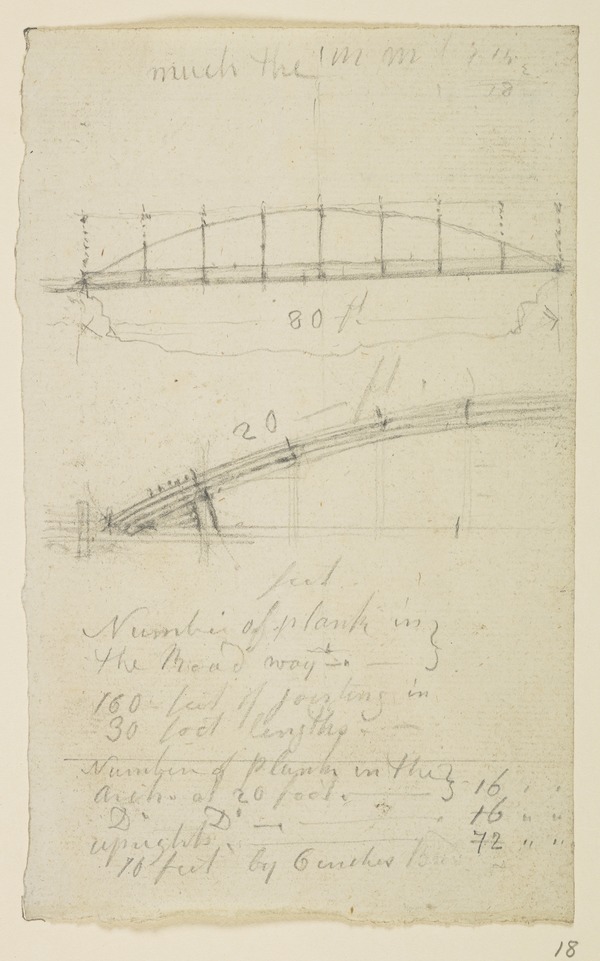 much the
18
80 ft
20 ft
feet
Number of plank in
the Road way
160 feet of joisting in
30 foot lengths
Number of Planks in the
at 20 foot 16 " "
Do Do 16 " "
uprights 72 " "
10 feet by 6 inches
18